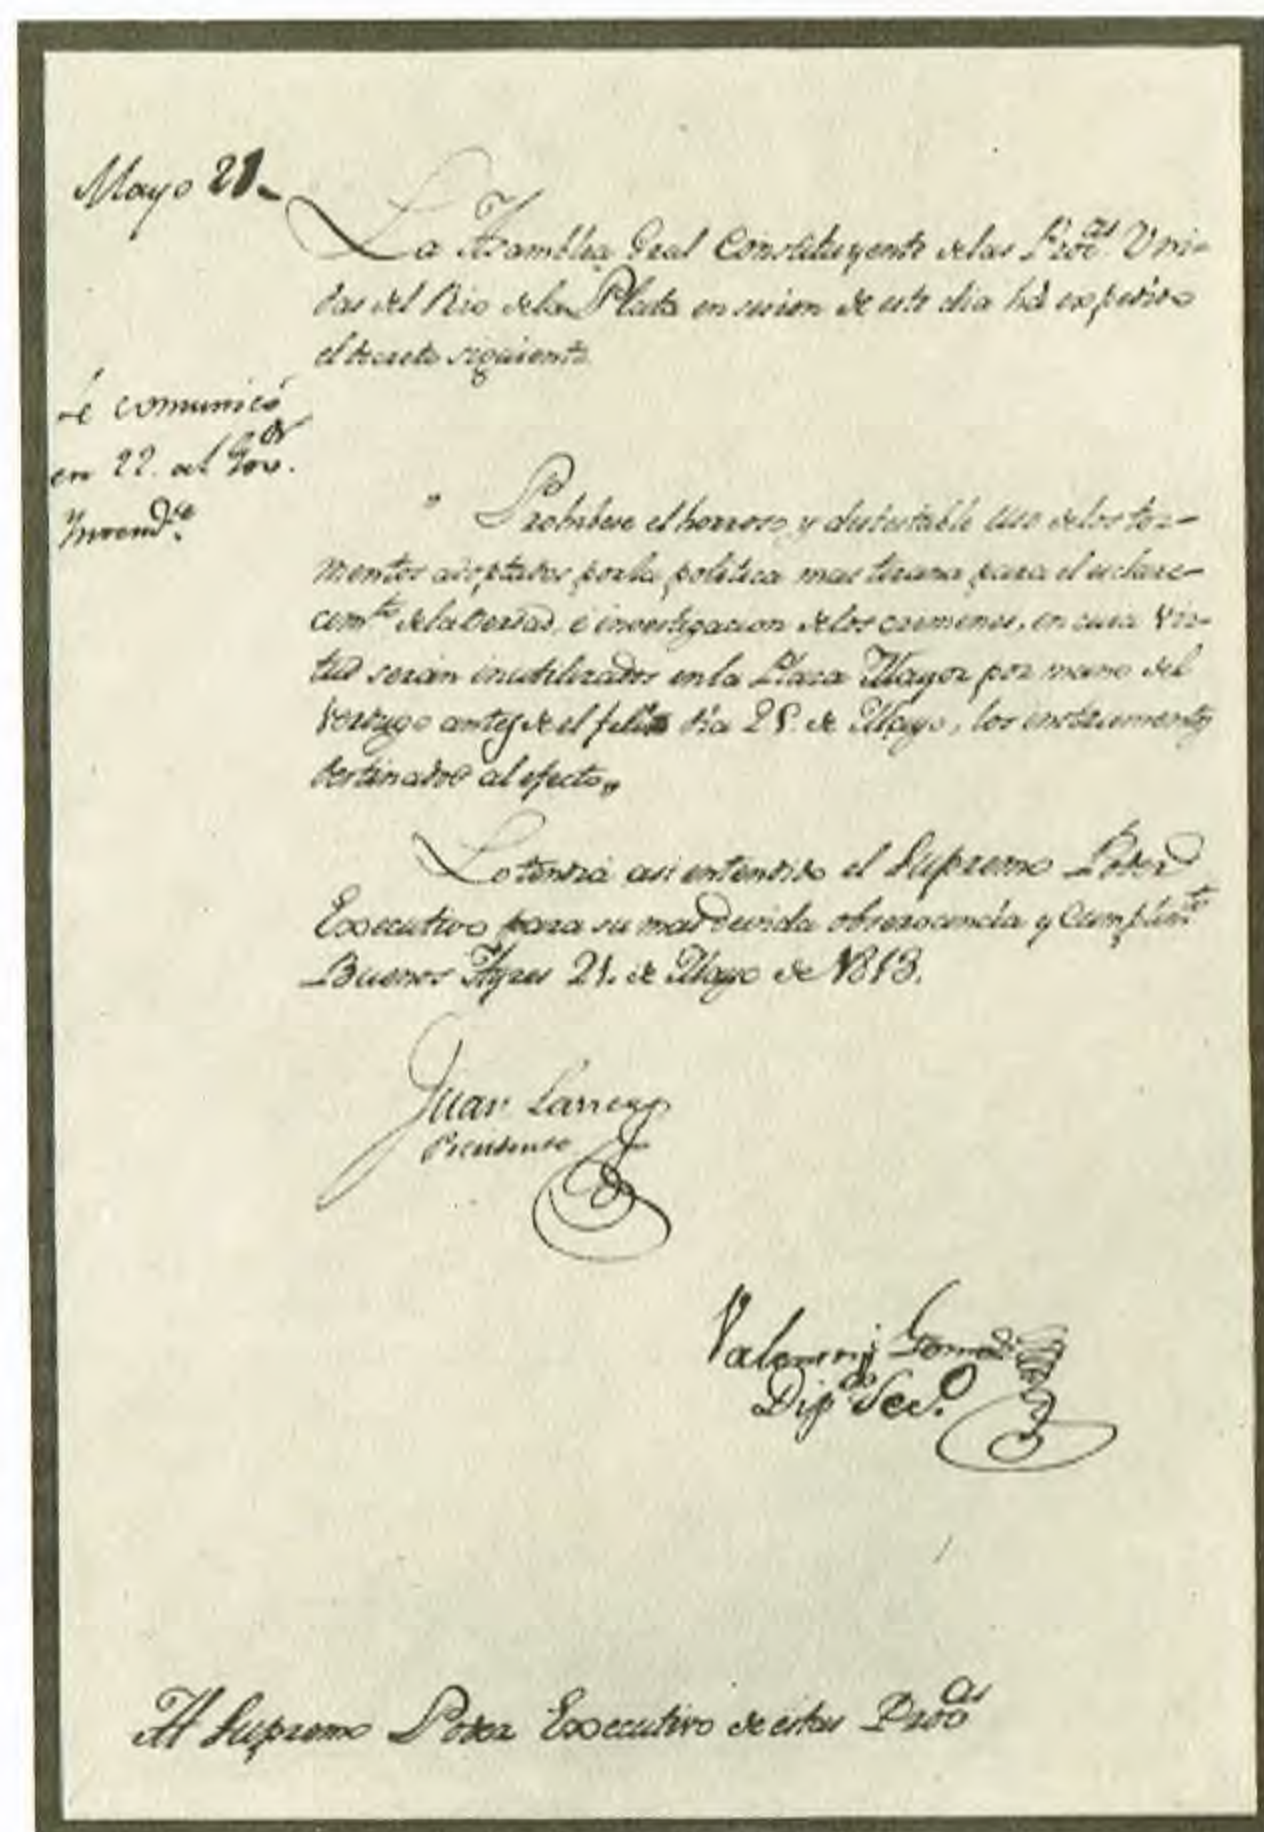 Mayo 21-
La Asamblea Gral Constituyente delas Prov.as Uni-
das del Rio dela Plata en sesion de este dia há expedido
el decreto siguiente
Se comunicó
en 22. al Gov.or
Yntend.te
" Prohibese el horroroso y detestable uso delos tor-
mentos adoptados porla politica mas tirana para el esclare-
cim.to dela verdad, é investigacion delos crimenes, en cuia vir-
tud serán inutilizados enla Plaza Mayor por mano del
verdugo antes de el feliz dia 25. de Mayo, los instrumentos
destinados al efecto„
Lo tendrá asi entendido el Supremo Poder
Executivo para su mas devida observancia y cumplim.to
Buenos Ayres 21. de Mayo de 1813.
Juan Larrea
Presidente
Valentin Gomez
Dip.do Sec.o
Al Supremo Poder Executivo de estas Prov.as